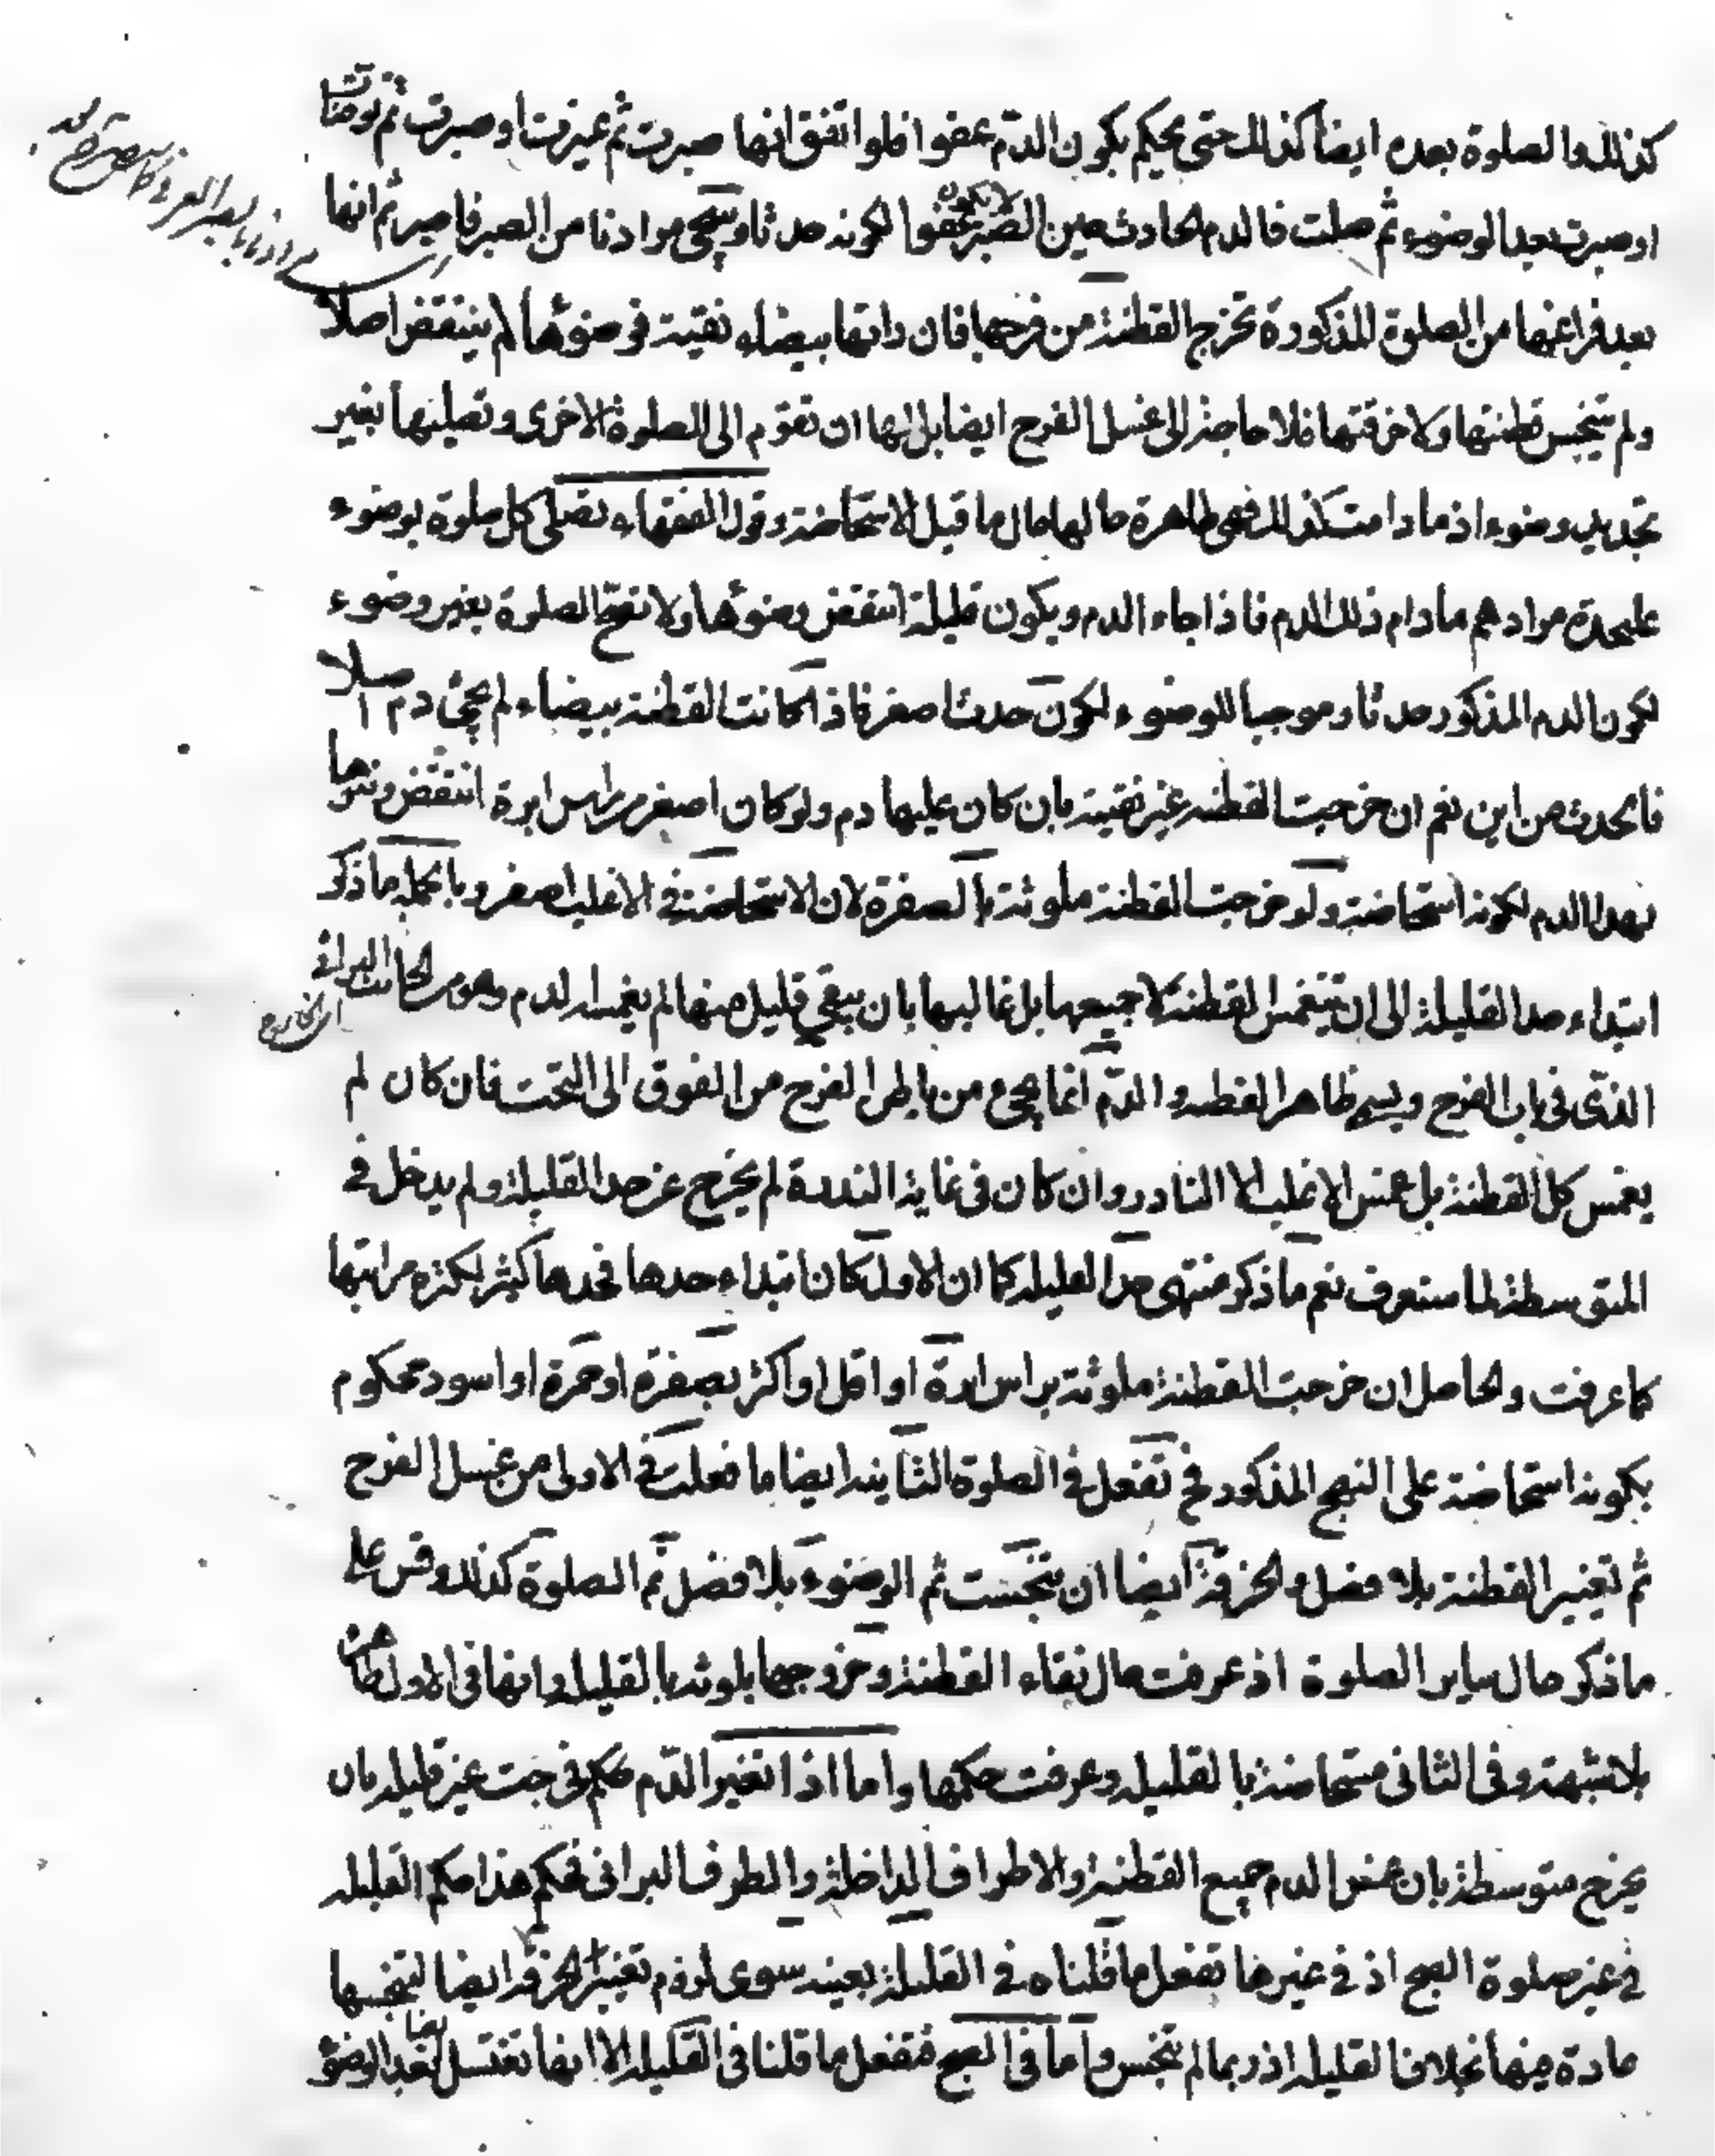 كذلك والصلوة بعده ايضا كذلك حتى يحكم بكون الدم عفوا فلو اتفق انها صبرت ثم غيرت او صبرت ثم توضات
او صبرت بعد الوضوء ثم صلت فالدم الحادث حين الصبر لا يكون عفوا لكونه حدثا وسيجئ مرادنا من الصبر فاصبر ثم انها
بعد فراغها من الصلوة المذكورة تخرج القطنة من فرجها فان راتها بيضاء نقية فوضوئها لم ينتقض اصلا
ولم يتنجس قطنتها ولا خرقتها فلا حاجة الى غسل الفرج ايضا بل لها ان تقوم الى الصلوة الاخرى وتصليها بغير
تجديد وضوء اذ ما دامت كذلك فهي طاهرة حالها حال ما قبل الاستحاضة وقول الفقهاء تصلى كل صلوة بوضوء
عليحدة مرادهم مادام ذلك الدم فاذا جاء الدم ويكون قليلة انتقض وضوئها ولا تصح الصلوة بغير وضوء
لكون الدم المذكور حدثا وموجبا للوضوء لكون حدثا اصغر فاذا كانت القطنة بيضاء لم يجئ دم اصلا
فالحدث من اين نعم ان خرجت القطنة غير نقية بان كان عليها دم ولو كان اصغر من راس ابرة انتقض وضوئها
بهذا الدم لكونه استحاضة ولو خرجت القطنة ملوثة بالصفرة لان الاستحاضة في الاغلب اصفر وبالجملة ما ذكر
ابتداء حد القليلة الى ان ينغمس القطنة لا جميعها بل غالبها بان يبقى قليل منها لم يغمسه الدم وهو من الجانب البراني
اى الخارج
الذى في باب الفرج ويسمى ظاهر القطنة والدم انما يجئ من باطن الفرج من الفوق الى التحت فان كان لم
يغمس كل القطنة بل غمس الاغلب الا النادر وان كان في غاية الندرة لم يخرج عن حد القليلة ولم يدخل في
المتوسطة لما ستعرف نعم ما ذكر منتهى حد القليلة كما ان الاول كان ابتداء حدها فحدها كثير لكثرة مراتبها
كما عرفت والحاصل ان خرجت القطنة ملوثة براس ابرة او اقل او اكثر بصفرة او حمرة او اسود محكوم
بكونه استحاضة على النهج المذكور فح تفعل في الصلوة الثانية ايضا ما فعلت في الاولى من غسل الفرج
ثم تغيير القطنة بلا فصل والخرقة ايضا ان تنجست ثم الوضوء بلا فصل ثم الصلوة كذلك وقس على
ما ذكر حال ساير الصلوة اذ عرفت حال نقاء القطنة وخروجها بلوثه بالقليلة وانها في الاول طاهرة
بلا شبهة وفي الثاني مستحاضة بالقليلة وعرفت حكمها واما اذا تغير الدم حكم فخرجت غير قليلة بان
يخرج متوسطة بان غمس الدم جميع القطنة والاطراف الداخلة والطرف البراني فحكم هذا حكم القليلة
في غير صلوة الصبح اذ في غيرها تفعل ما قلناه في القليلة بعينه سوى لزوم تغيير الخرقة ايضا لتنجسها
عادة فيها بخلاف القليلة اذ ربما لم يتنجس واما في الصبح فتفعل ما قلنا في القليلة الا انها تغتسل ايضا بعد الوضوء